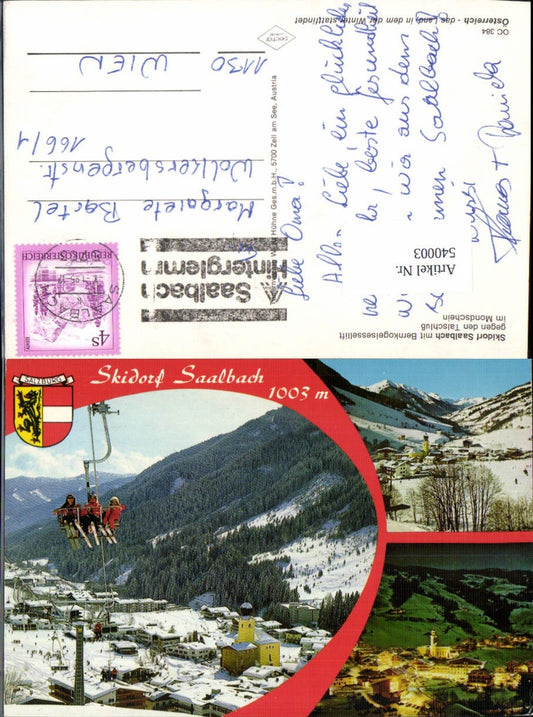 OC 384
Österreich - das Land, in dem der Winter stattfindet
Skidorf Saalbach mit Bernkogelsessellift
gegen den Talschluß
im Mondschein
Hühne Ges.m.b.H., 5700 Zell am See, Austria
Liebe Oma!
Alles Liebe ein glückliches
beste Gesundheit
aus dem
Saalbach
Bussi
+ Daniela
Artikel Nr.
540003
Saalbach
Hinterglemm
REPUBLIK ÖSTERREICH
4S
SAALBACH
Margarete Bartel
Wolkersbergenstr.
166/1
1130 WIEN
SALZBURG
Skidorf Saalbach
1003 m